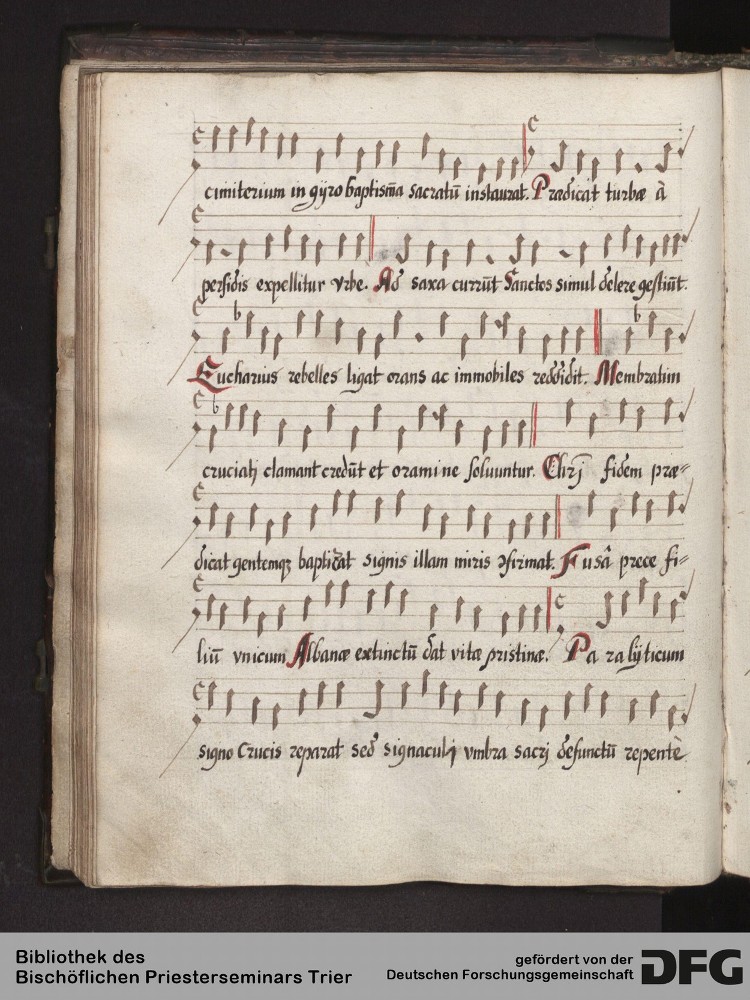 cimiterium in gÿro baptism̄a sacratū instaurat. Prædicat turbæ à
persidis expellitur vrbe. Ad saxa currūt Sanctos simul delere gestiūt.
Eucharius rebelles ligat orans ac immobiles reddidit. Membratim
cruciatj clamant credūt et oramine soluuntur. Chrj̄ fidem præ=
dicat gentemqꝫ baptizat signis illam miris ↄfirmat. Fusâ prece fi=
liū vnicum Albanæ extinctū dat vitæ pristinæ. Paralÿticum
signo Crucis reparat sed signaculj vmbra sacrj defunctū repentè
Bibliothek des
Bischöflichen Priesterseminars Trier
gefördert von der
Deutschen Forschungsgemeinschaft
DFG